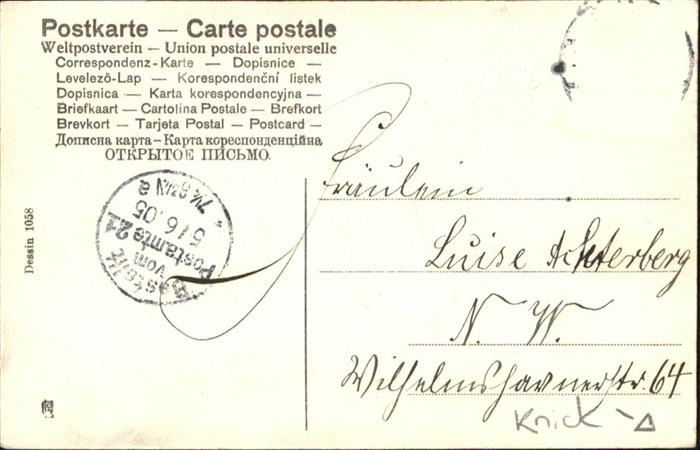 Postkarte — Carte postale
Weltpostverein — Union postale universelle
Correspondenz-Karte — Dopisnice —
Levelező-Lap — Korespondenční listek
Dopisnica — Karta korespondencyjna —
Briefkaart — Cartolina Postale — Brefkort
Brevkort — Tarjeta Postal — Postcard —
Дописна карта — Карта кореспонденційна
ОТКРЫТОЕ ПИСЬМО.
Bestellt
vom
Postamte 21
5/6.05
7¼-8¼N
Dessin 1058
Fräulein
Luise Achterberg
N. W.
Wilhelmshavnerstr. 64
Knick